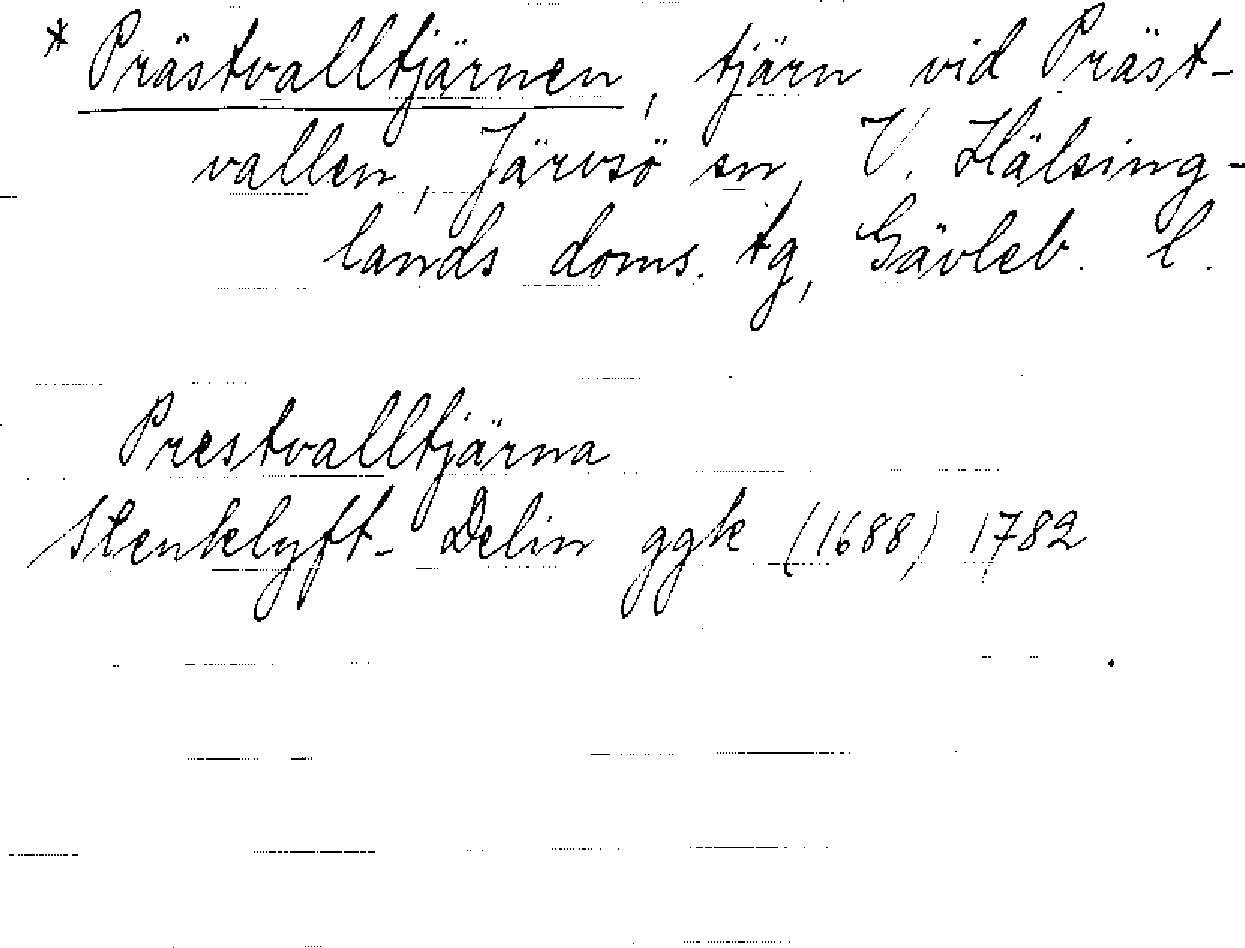 * Prästvalltjärnen, tjärn vid Präst-
vallen, Järvsö sn, V. Hälsing-
lands doms. tg, Gävleb. l.
Prestvalltjärna
Stenklyft- Delin ggk (1688) 1782